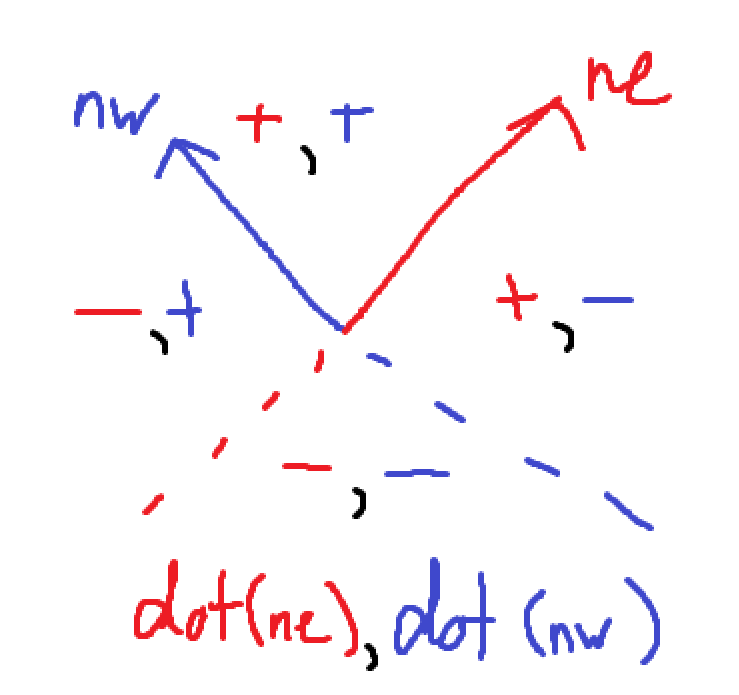 ne
nw
+, +
-, +
+, -
-, -
dot(ne), dot(nw)